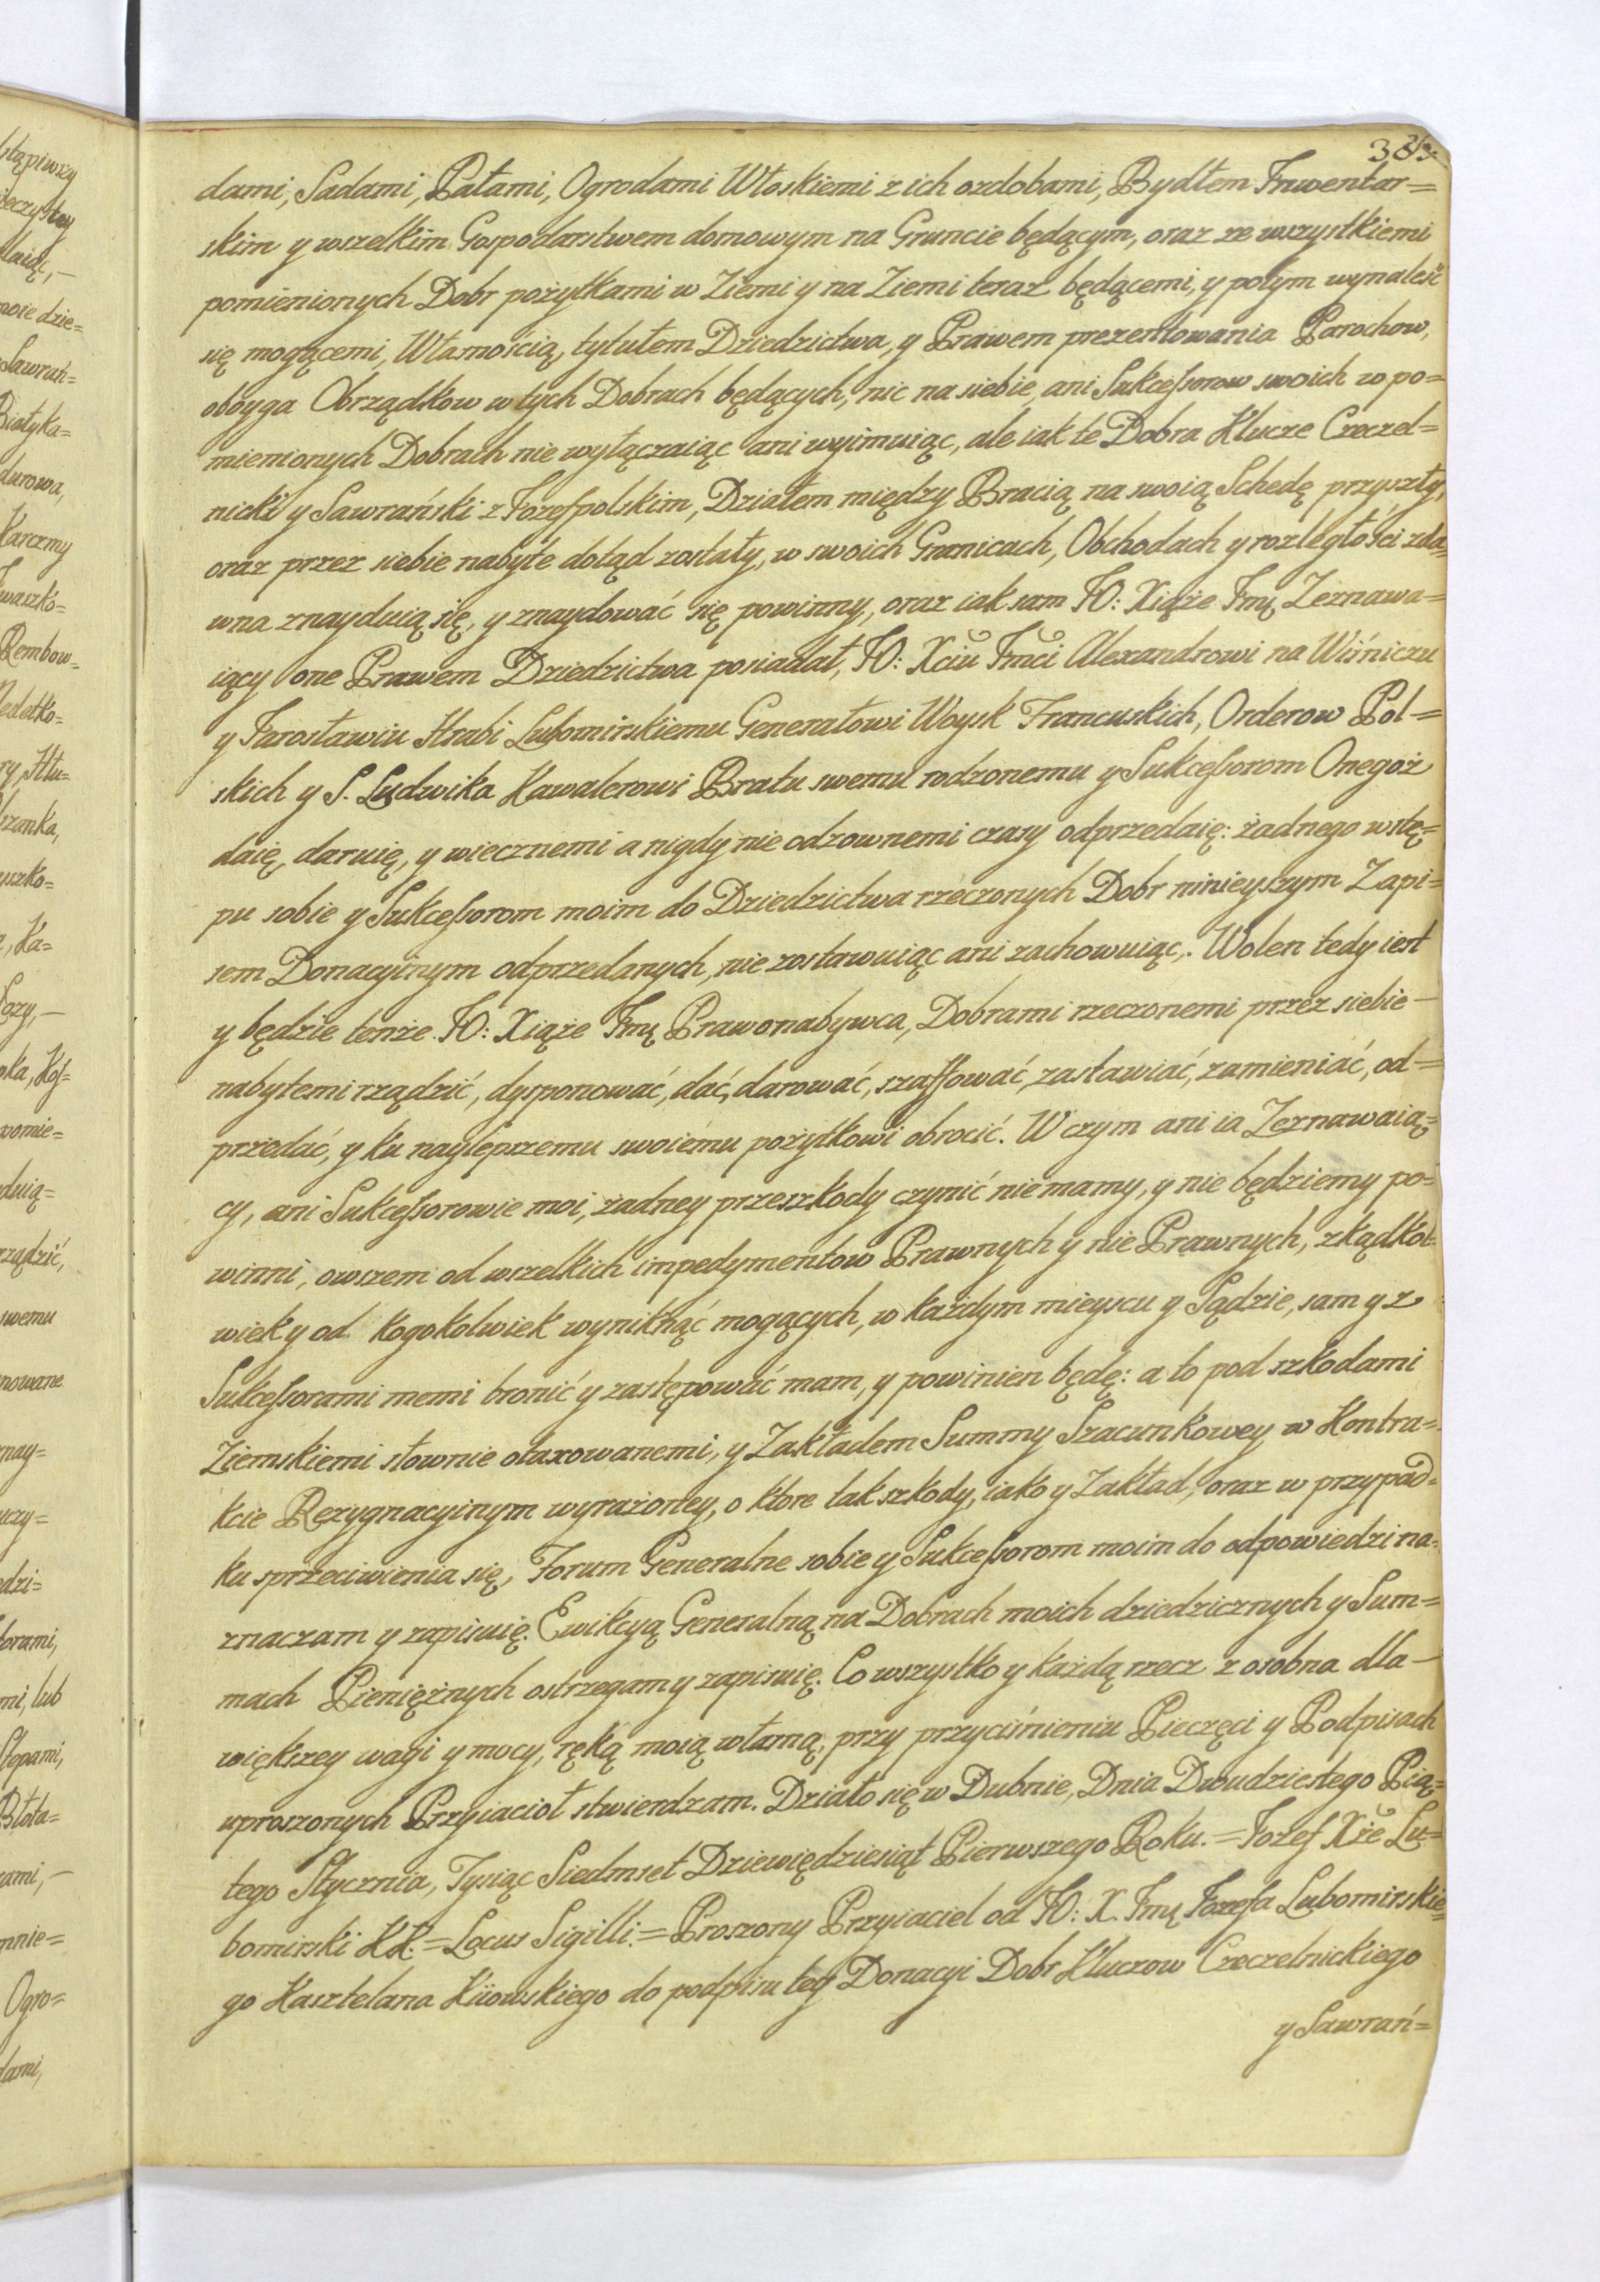 385.
dami, Sadami, Pałami, Ogrodami Włoskiemi z ich ozdobami, Bydłem Inwentar=
skim y wszelkim Gospodarstwem domowym na Gruncie będącym, oraz ze wszystkiemi
pomienionych Dobr pożytkami w Ziemi y na Ziemi teraz będącemi, y potym wynaleść
się mogącemi, Własnością, tytułem Dziedzictwa, y Prawem prezentowania Parochow,
oboyga Obrządkow w tych Dobrach będących, nic na siebie, ani Sukcessorow swoich w po=
mienionych Dobrach nie wyłączaiąc ani wyimuiąc, ale iak te Dobra Klucze Czeczel=
nicki y Sawrański z Jozefpolskim, Działem między Bracią na swoią Schedę przyszły,
oraz przez siebie nabyte dotąd zostały, w swoich Granicach, Obchodach y rozległości zda=
wna znayduią się, y znaydować się powinny, oraz iak sam JO: Xiąże Jmę Zeznawa=
iący one Prawem Dziedzictwa posiadał, JO: Xciu Jmci Alexandrowi na Wiśniczu
y Jarosławiu Hrabi Lubomirskiemu Generałowi Woysk Francuskich, Orderow Pol=
skich y S. Ludwika Kawalerowi Bratu swemu rodzonemu y Sukcessorom Onegoż
daię, daruię, y wiecznemi a nigdy nie odzownemi czasy odprzedaię: żadnego wstę=
pu sobie y Sukcessorom moim do Dziedzictwa rzeczonych Dobr ninieyszym Zapi=
sem Donacyinym odprzedanych, nie zostawuiąc ani zachowuiąc. Wolen tedy iest
y będzie tenże JO: Xiąże Jmę Prawonabywca, Dobrami rzeczonemi przez siebie —
nabytemi rządzić, dysponować, dać, darować, szaffować, zastawiać, zamieniać, od=
przedać, y ku naylepszemu swoiemu pożytkowi obrocić. W czym ani ia Zeznawaią=
cy, ani Sukcessorowie moi, żadney przeszkody czynić nie mamy, y nie będziemy po=
winni, owszem od wszelkich impedymentow Prawnych y nie Prawnych, zkądkol=
wiek y od kogokolwiek wyniknąć mogących, w każdym mieyscu y Sądzie, sam y z
Sukcessorami memi bronić y zastępować mam, y powinien będę: a to pod szkodami
Ziemskiemi słownie otaxowanemi, y Zakładem Summy Szacunkowey w Kontra=
kcie Rezygnacyinym wyrażoney, o ktore tak szkody, iako y Zakład, oraz w przypad=
ku sprzeciwienia się, Forum Generalne sobie y Sukcessorom moim do odpowiedzi na=
znaczam y zapisuię. Ewikcyą Generalną na Dobrach moich dziedzicznych y Sum=
mach Pieniężnych ostrzegam y zapisuię. Co wszystko y każdą rzecz z osobna dla —
większey wagi y mocy, ręką moią własną, przy przyciśnieniu Pieczęci y Podpisach
uproszonych Przyiacioł stwierdzam. Działo się w Dubnie, Dnia Dwudziestego Pią=
tego Stycznia, Tysiąc Siedmset Dziewiędziesiąt Pierwszego Roku. = Jozef Xże Lu=
bomirski KK. = Locus Sigilli. = Proszony Przyiaciel od JO: X. Jmę Jozefa Lubomirskie=
go Kasztelana Kiiowskiego do podpisu tey Donacyi Dobr Kluczow Czeczelnickiego
y Sawrań=